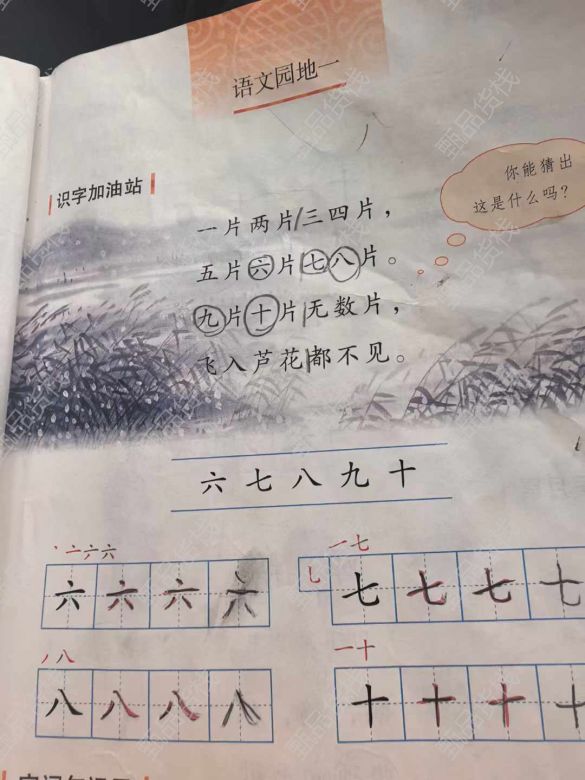 语文园地一
识字加油站
你能猜出
这是什么吗？
一片两片三四片，
五片六片七八片。
九片十片无数片，
飞入芦花都不见。
六七八九十
六 六 六 六
一七
七 七 七 七
八 八 八 八
一十
十 十 十
甄品货栈